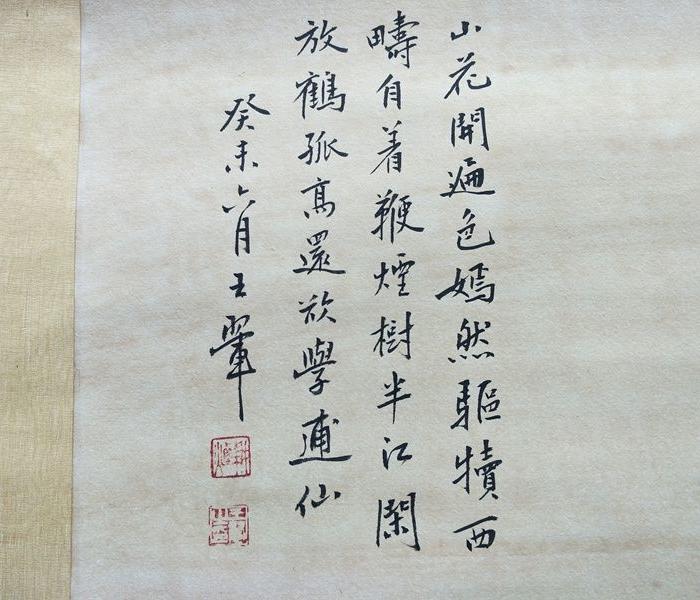 山花開遍色嫣然驅犢西
疇自着鞭煙樹半江閑
放鶴孤高還欲學逋仙
癸未六月王翬